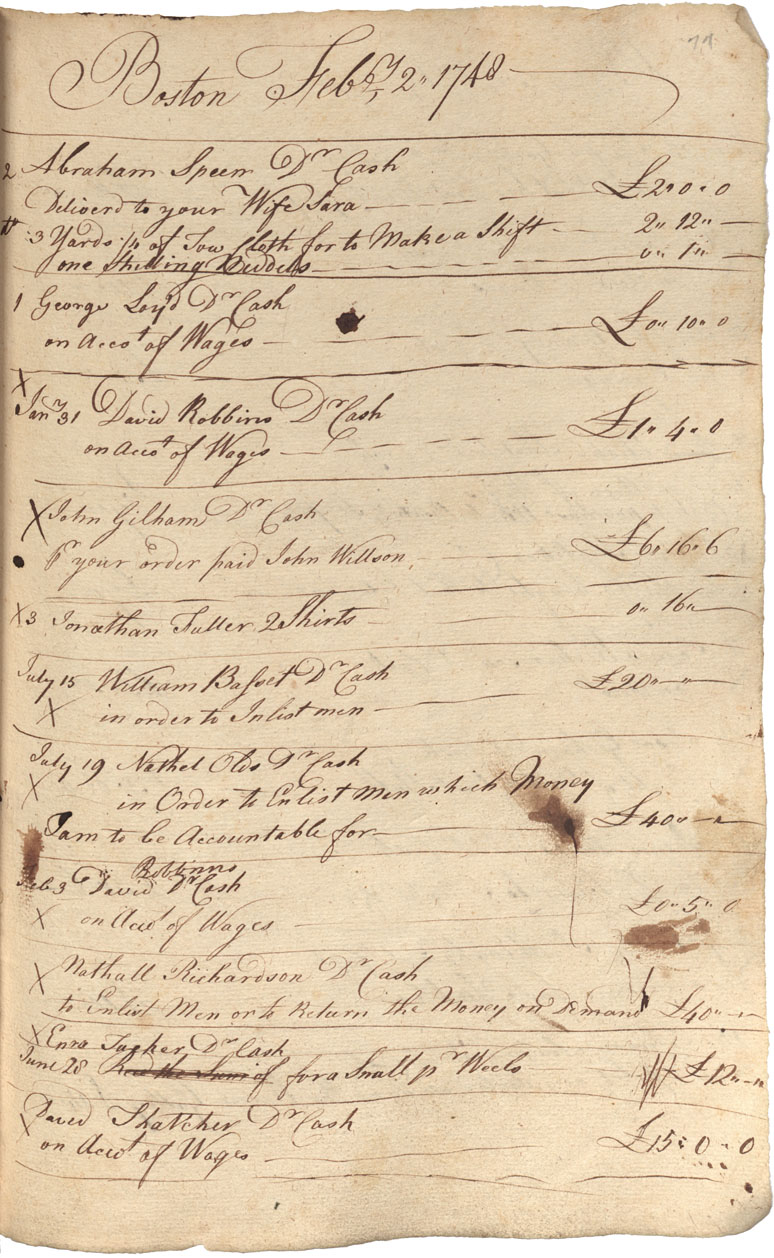 74
Boston Febry 2,, 1748
2 Abraham Speen Dr Cash £2,, 0,, 0
Deliverd to your Wife Sara
3 Yards 1/4 of Tow Cloth for to Make a Shift 2,, 12,,
one Shilling 0,, 1,,
1 George Loyd Dr Cash
on Accot of Wages £0,, 10,, 0
X
Jany 31 David Robbins Dr Cash £1,, 4,, 0
on Accot of Wages
X John Gilham Dr Cash
pr your order paid John Willson £6,, 16,, 6
X 3 Jonathan Fuller 2 Shirts 0,, 16,,
July 15 William Basset Dr Cash £20,, ,,
X in order to Inlist men
July 19 Nathel Olds Dr Cash
X in Order to Enlist Men which Money
I am to be Accountable for £40,, ,,
Robbinns
Feb 3 David Dr Cash £0,, 5,, 0
X on Accot of Wages
X Nathall Richardson Dr Cash
to Enlist Men or to Return the Money on Demand £40,, ,,
X Enra Tucker Dr Cash
June 28 for a Small pr Weels £12,, ,,
X David Thatcher Dr Cash
on Accot of Wages £15,, 0,, 0